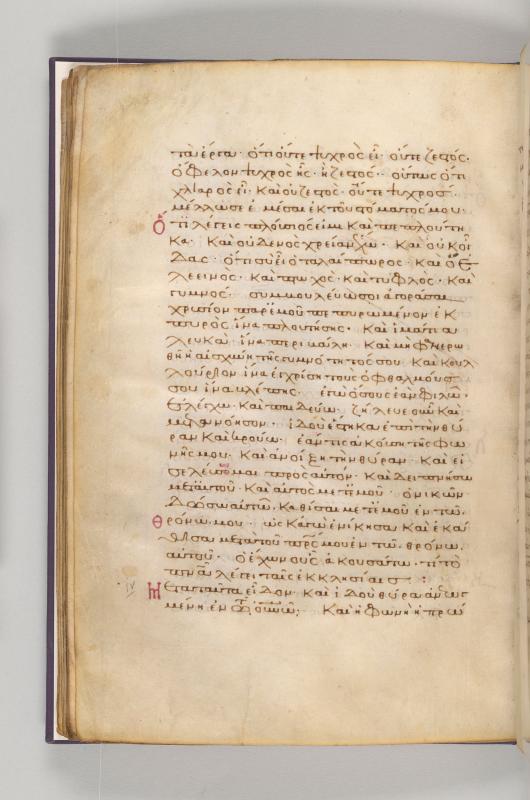 τὰ ἔργα· ὅτι οὔτε ψυχρὸς εἶ· οὔτε ζεστός·
ὄφελον ψυχρὸς ἦς· ἢ ζεστός· οὕτως ὅτι
χλιαρὸς εἶ· καὶ οὐ ζεστὸς· οὔτε ψυχρος·
μέλλω σε ἐμέσαι ἐκ τοῦ στόματός μου·
ὅτι λέγεις πλούσιός εἰμι καὶ πεπλούτη
κα· καὶ οὐδενὸς χρείαν ἔχω· καὶ οὐκ οἶ
δας· ὅτι σὺ εἶ ὁ ταλαίπωρος· καὶ ὁ ἐ
λεεινὸς· καὶ πτωχὸς· καὶ τυφλὸς· καὶ
γυμνός· συμβουλεύω σοι ἀγοράσαι
χρυσίον παρ' ἐμοῦ πεπυρωμένον ἐκ
πυρὸς ἵνα πλουτήσης· καὶ ἱμάτια
λευκὰ ἵνα περιβάλη· καὶ μὴ φανερω
θῆ ἡ αἰσχύνη τῆς γυμνότητός σου· καὶ κουλ
λούριον ἵνα ἐγχρίση τοὺς ὀφθαλμούς
σου ἵνα βλέπης· ἐγὼ ὅσους ἐὰν φιλῶ·
ἐλέγχω· καὶ παιδεύω· ζήλευε οὖν καὶ
μετανόησον· ἰδοὺ ἕστηκα ἐπὶ τὴν θύ
ραν καὶ κρούω· ἐάν τις ἀκούση τῆς φω
νῆς μου· καὶ ἀνοίξη τὴν θύραν· καὶ εἰ
σελεύσομαι πρὸς αὐτόν· καὶ δειπνήσω
μετ' αὐτοῦ· καὶ αὐτὸς μετ' ἐμοῦ· ὁ νικῶν
δώσω αὐτῶ· καθίσαι μετ' ἐμοῦ ἐν τῶ
θρόνω μου· ὡς κἀγὼ ἐνίκησα· καὶ ἐκά
θισα μετὰ τοῦ πρς μου ἐν τῶ θρόνω
αὐτοῦ· ὁ ἔχων οὖς ἀκουσάτω· τί τὸ
πνα λέγει ταῖς ἐκκλησίαις :
Μετὰ ταῦτα εἶδον· καὶ ἰδοὺ θύρα ἀνεωγ
μένη ἐν τῶ οὐνῶ· καὶ ἡ φωνὴ ἡ πρώ